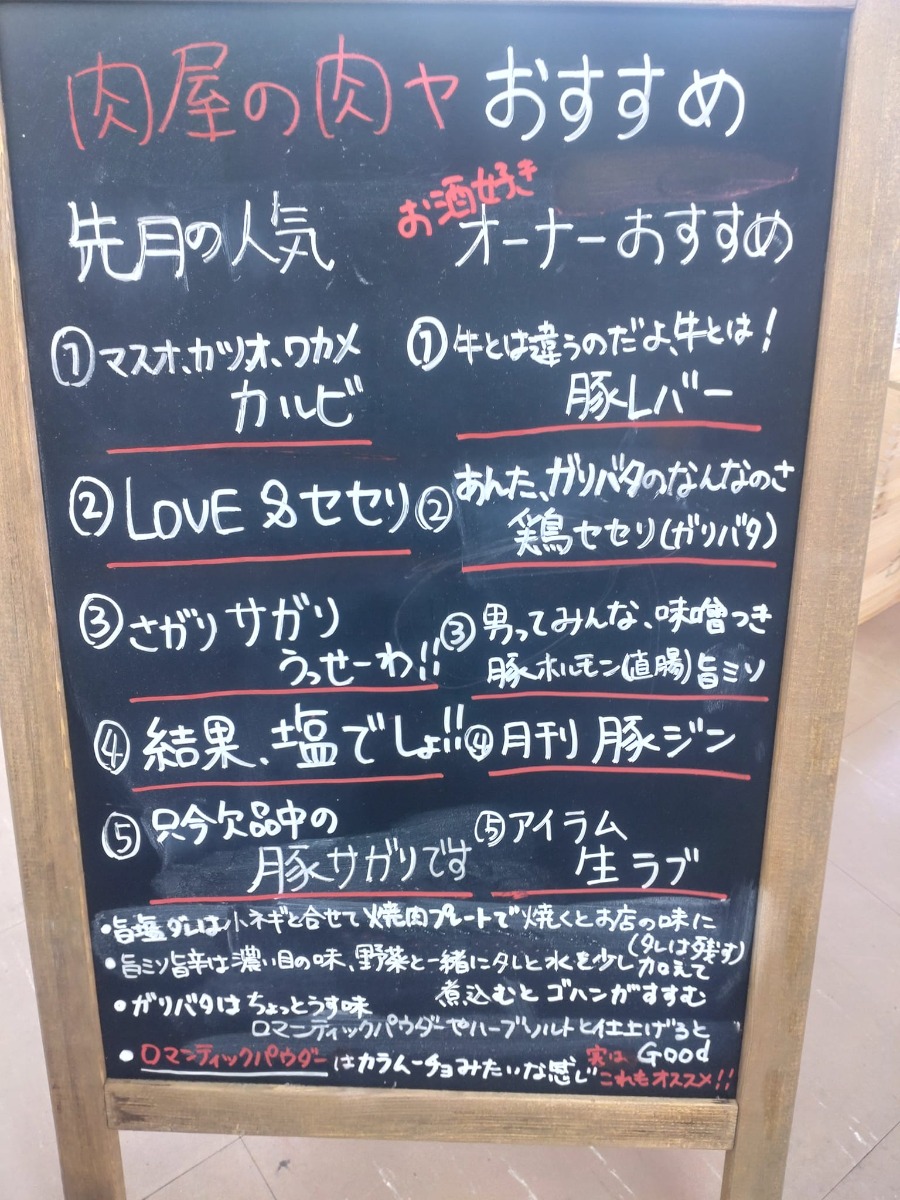 肉屋の肉ヤ おすすめ
先月の人気
① マスオ、カツオ、ワカメ
カルビ
② LOVE &セセリ
③ さがりサガリ
うっせーわ!!
④ 結果、塩でしょ!!
⑤ 只今欠品中の
豚サガリです
お酒好き
オーナーおすすめ
① 牛とは違うのだよ、牛とは!
豚レバー
② あんた、ガリバタのなんなのさ
鶏セセリ(ガリバタ)
③ 男ってみんな、味噌つき
豚ホルモン(直腸)旨ミソ
④ 月刊 豚ジン
⑤ アイラム
生ラブ
・旨塩ダレは小ネギと合せて焼肉プレートで焼くとお店の味に
(タレは残す)
・旨ミソ旨辛は濃い目の味、野菜と一緒にタレと水を少し加えて
煮込むとゴハンがすすむ
・ガリバタはちょっとうす味
ロマンティックパウダーやハーブソルトと仕上げると
Good
・ロマンティックパウダーはカラムーチョみたいな感じ 実は
これもオススメ!!